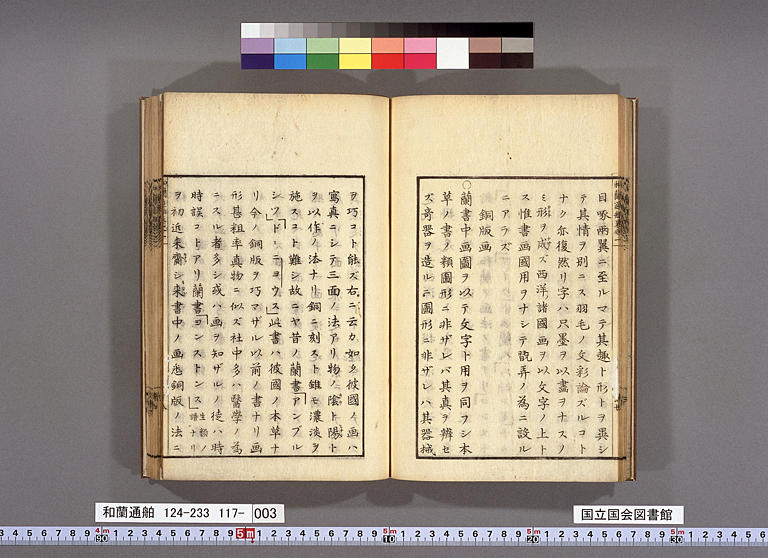 目啄両翼ニ至ルマテ其趣ト形トヲ異シ
テ其情ヲ別ニス羽毛ノ文彩論ズルコト
ナク亦復然リ字ハ尺墨ヲ以畫ヲナスノ
ミ形ヲ成ズ西洋諸國画ヲ以文字ノ上ト
ス惟書画國用ヲナシテ翫弄ノ為ニ設ル
ニアラズ
銅版画
○蘭書中画圖ヲ以テ文字ト用ヲ同フシ本
草ノ書ノ類圖形ニ非ザレバ其真ヲ辨セ
ズ奇器ヲ造ルニ圖形ニ非ザレハ其器械
ヲ巧コト能ズ右ニ云カ如ク彼國ノ画ハ
寫真ニシテ三面ノ法アリ物ノ陰ト陽ト
ヲ以作ノ法ナリ銅ニ刻スト雖モ濃淡ヲ
施スコト難シ故ニヤ昔ノ蘭書アンブル
シツドニヨウス此書ハ彼國ノ本草ナ
リ今ノ銅版ヲ巧マザル以前ノ書ナリ画
形甚粗率真物ニ似ズ社中多ハ醫學ノ為
ニスル者多シ或ハ画ヲ知ザルノ徒ハ時
時誤コトアリ蘭書ヨンストンス生類ノ譜ナリ
ヲ初近来齎シ来書中ノ画悉銅版ノ法ニ
和蘭通舶 124-233 117- 003
国立国会図書館